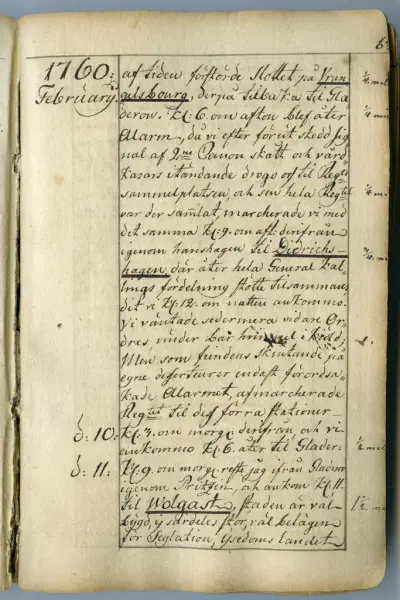 1760:
Februarÿ.
af tiden förstörde Slottet på Vran
gelsbourg, derpå tilbaka til Gla
derow. Kl: 6. om afton blef åter
Alarm, då vi efter förut skedd sig
nal af 2ne Canon skått och vård
kasars itändande drogo oss til Regts
sammelplatsen, och sen hela Regtet
var der samlat, marcherade vi med
det samma Kl: 9. om aft: denfrån
igenom hanshagen til Didrichs-
hagen, där åter hela General Kal
lings fördelning stötte tilsamman,
dit vi Kl: 12. om natten ankommo.
Vi väntade sedermera vidare Or
dres, under bar himmel i köld;
Men som fiendens skiutande på
egne deserteurer endast förorsa
kade Alarmet, afmarcherade
Regtet til dess förra stationer
d: 10: Kl: 3. om morg: denfrån och vi
ankommo Kl: 6. åter til Glader:
d: 11: Kl: 9. om morg: reste jag ifrån Gladerow
igenom Pritzier, och ankom Kl: 11.
til Wolgast, staden är väl
bygd, ej särdeles stor, väl belägen
för Seglation, Usedoms landet